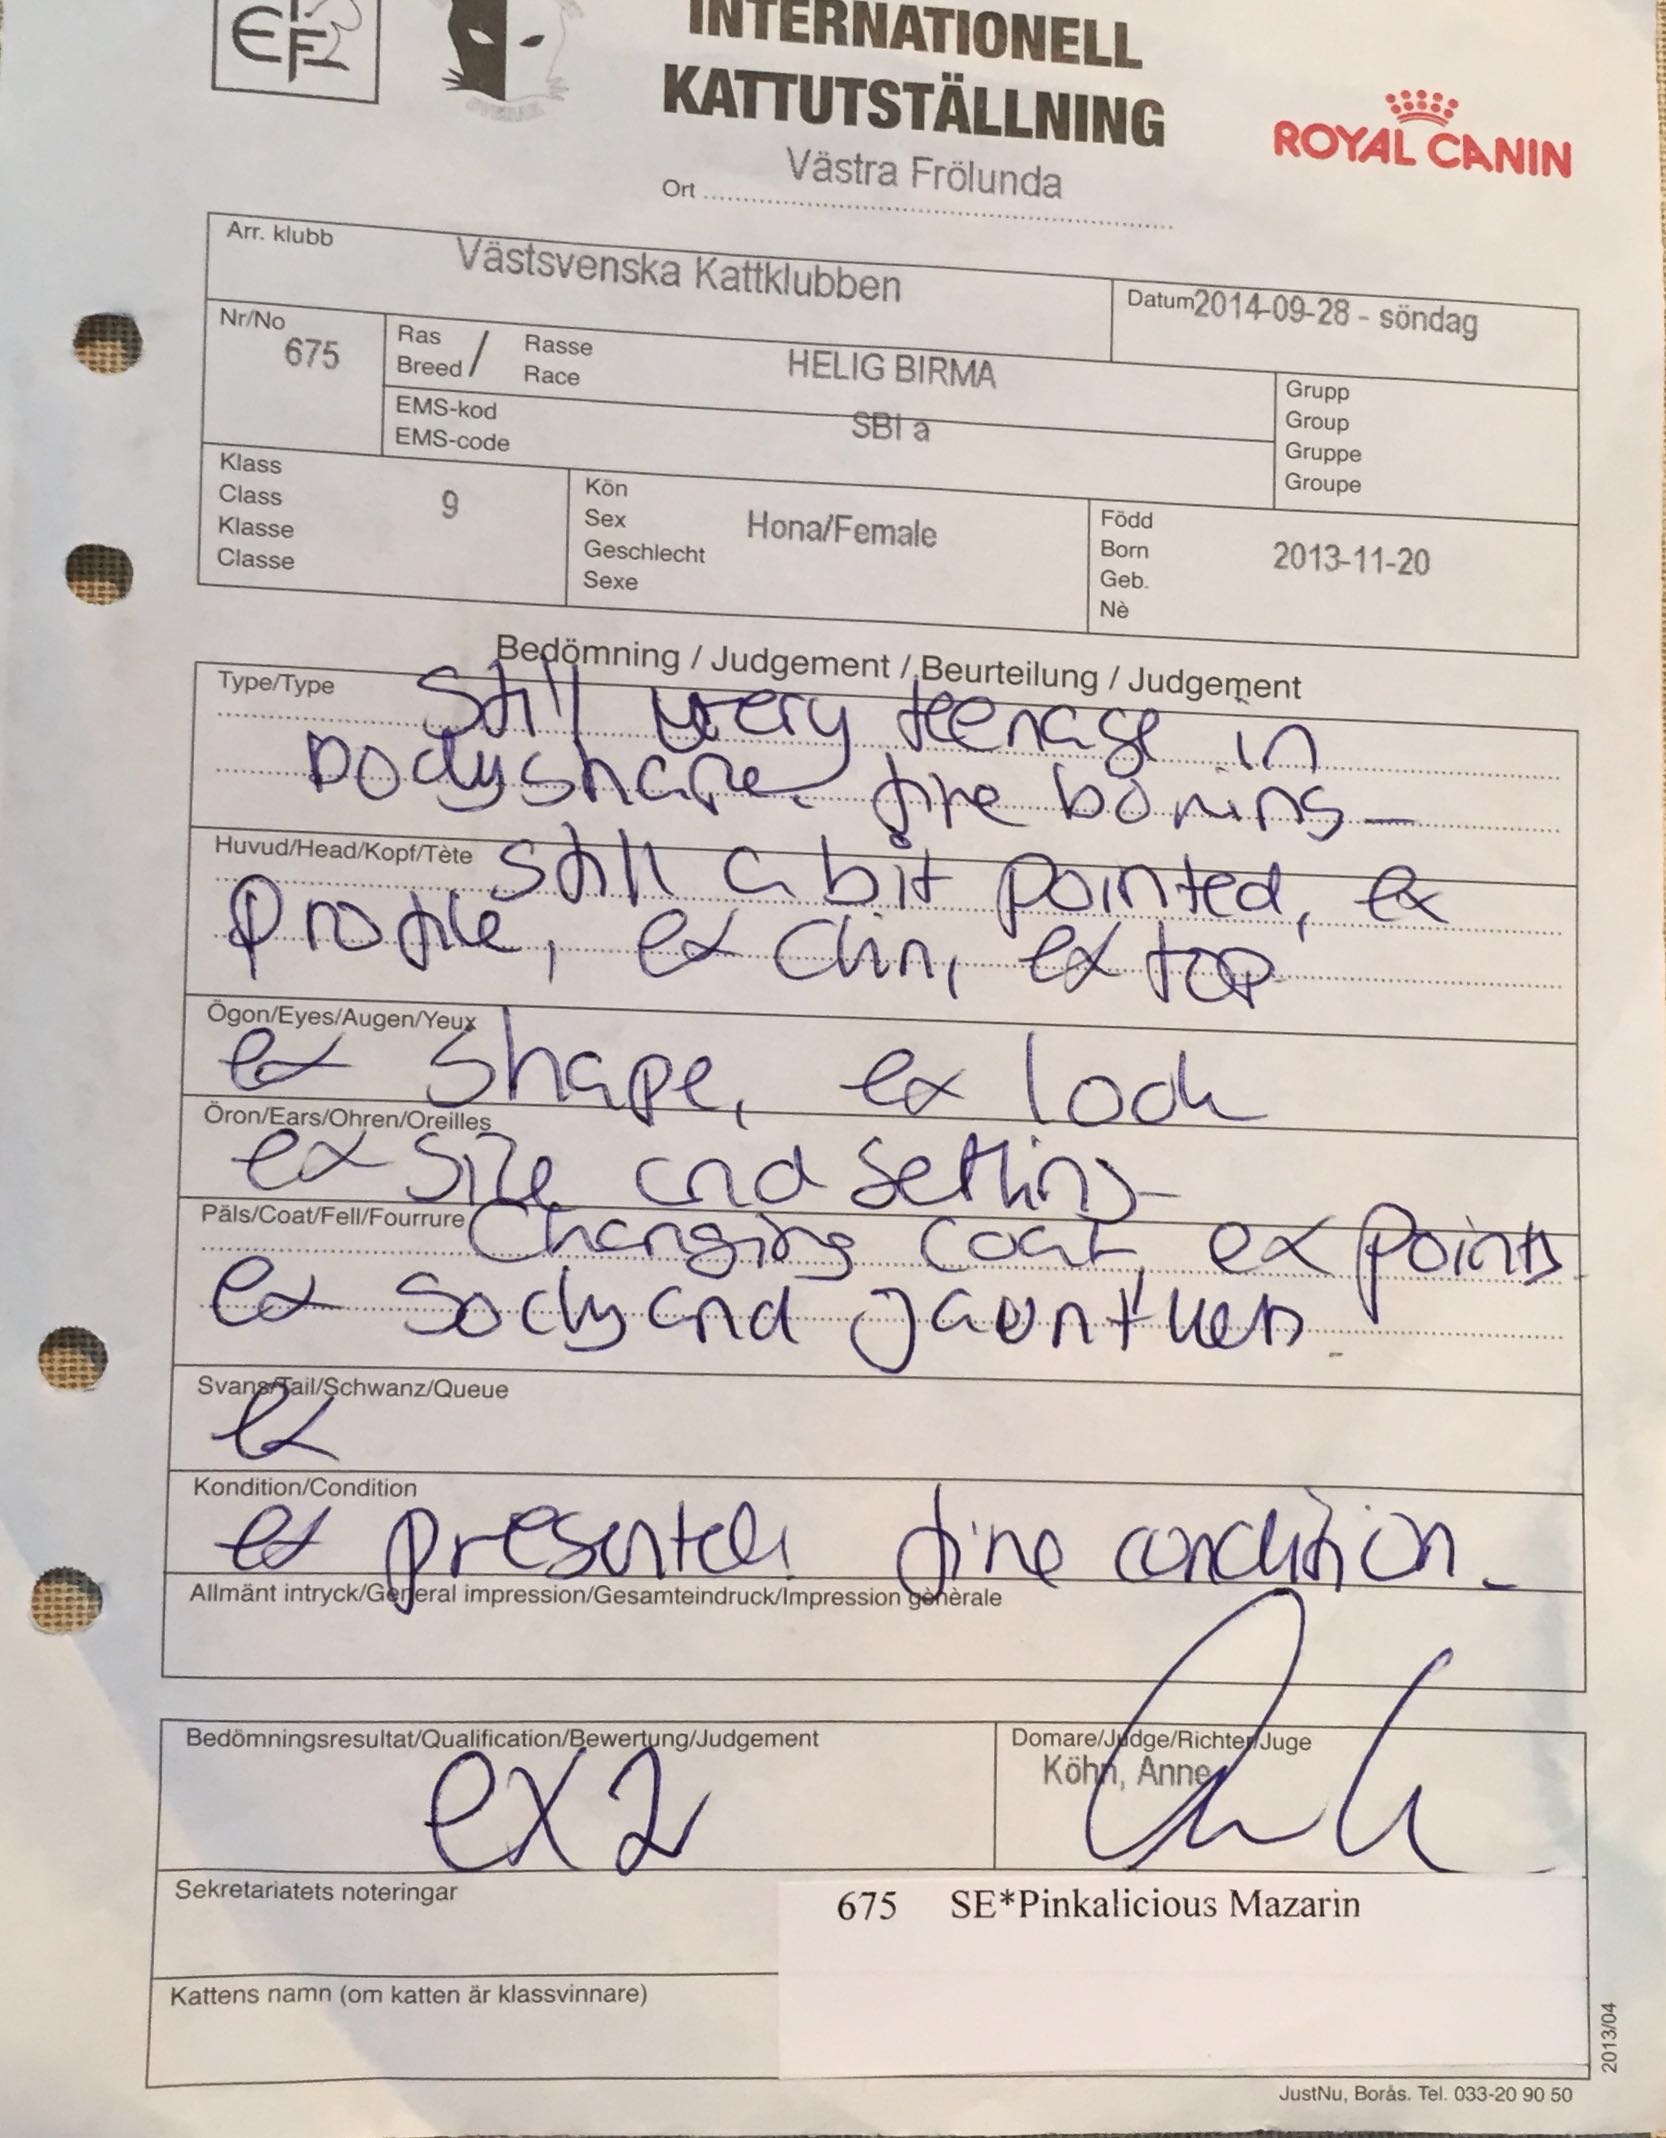 INTERNATIONELL
KATTUTSTÄLLNING
ROYAL CANIN
Ort Västra Frölunda
Arr. klubb Västsvenska Kattklubben
Datum 2014-09-28 - söndag
Nr/No 675
Ras Breed / Rasse Race HELIG BIRMA
EMS-kod EMS-code SBI a
Grupp
Group
Gruppe
Groupe
Klass
Class 9
Klasse
Classe
Kön
Sex Hona/Female
Geschlecht
Sexe
Född
Born 2013-11-20
Geb.
Nè
Bedömning / Judgement / Beurteilung / Judgement
Type/Type Still very teenage in
bodyshape. fine boning
Huvud/Head/Kopf/Tète Still a bit pointed, ex
profile, ex chin, ex top
Ögon/Eyes/Augen/Yeux
ex shape, ex look
Öron/Ears/Ohren/Oreilles
ex size and setting
Päls/Coat/Fell/Fourrure Changing coat, ex points
ex and
Svans/Tail/Schwanz/Queue
ex
Kondition/Condition
ex presented fine condition.
Allmänt intryck/General impression/Gesamteindruck/Impression gènèrale
Bedömningsresultat/Qualification/Bewertung/Judgement
ex 2
Domare/Judge/Richter/Juge
Köhn, Anne
Sekretariatets noteringar
675 SE*Pinkalicious Mazarin
Kattens namn (om katten är klassvinnare)
2013/04
JustNu, Borås. Tel. 033-20 90 50